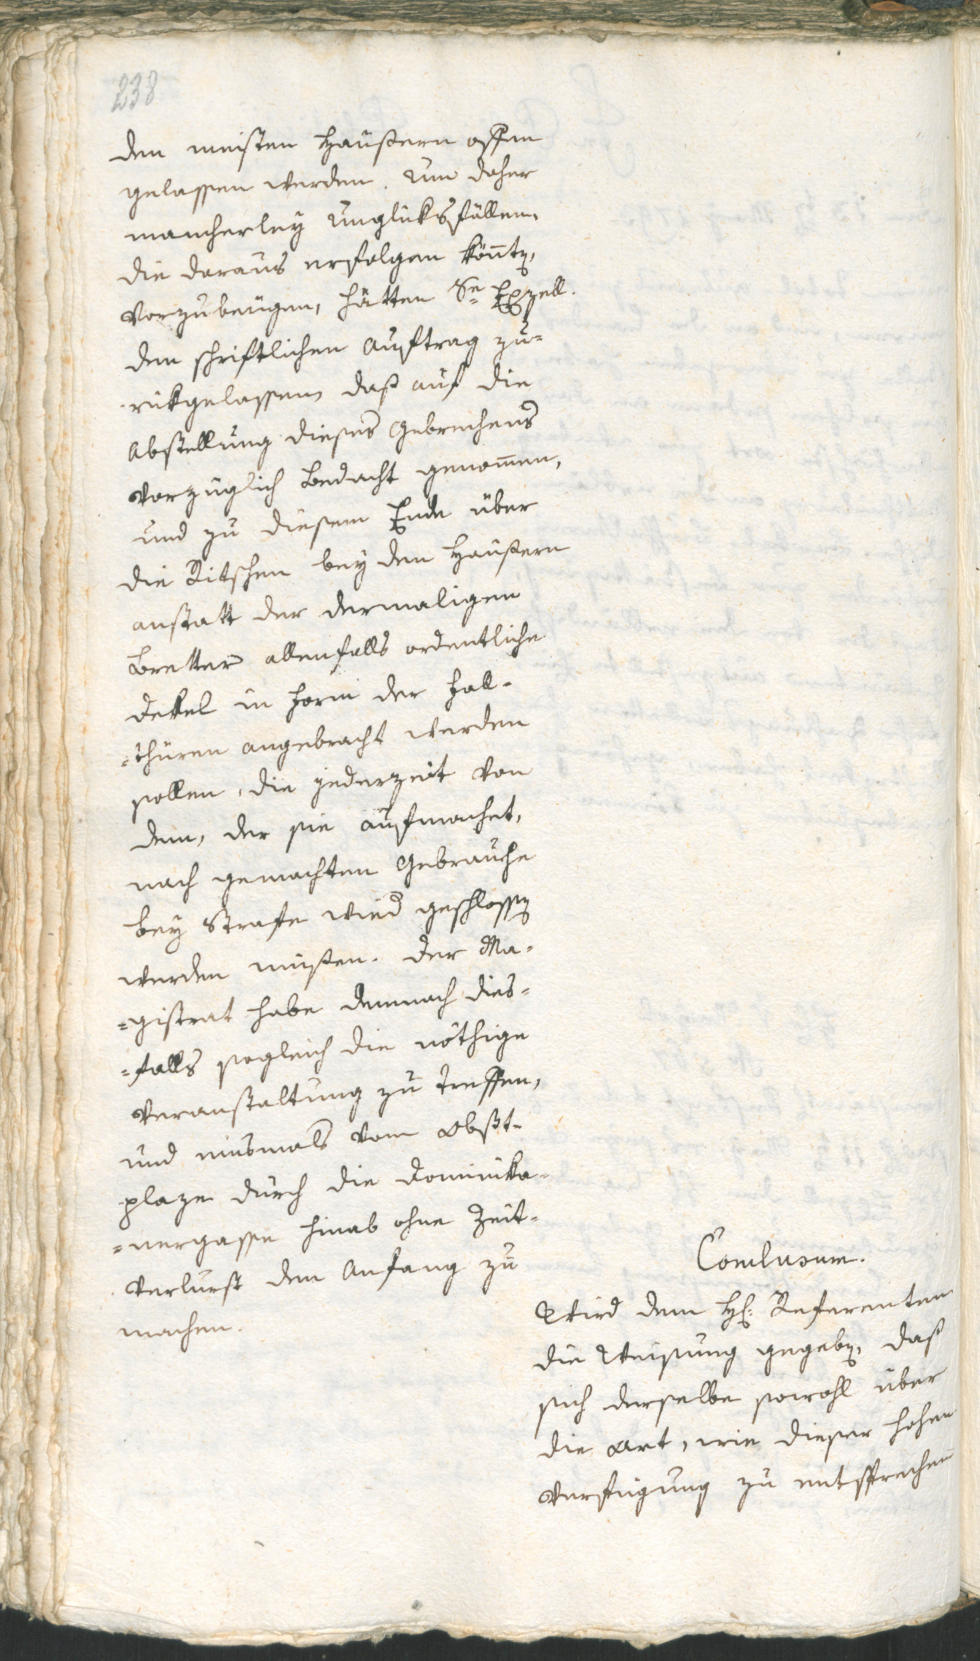 238
den meisten Haüßern offen
gelassen werden. Um daher
mancherley Unglüksfällen,
die daraus erfolgen könnten,
vorzubeugen, hätten Se Exzell.
den schriftlichen Auftrag zu-
rükgelassen, daß auf die
Abstellung dieses Gebrechens
vorzüglich Bedacht genommen,
und zu diesem Ende über
die Ritschen bey den Haüßern
anstatt der dermaligen
Bretter allenfalls ordentliche
Dekel in Form der Fall-
=thüren angebracht werden
sollen, die jederzeit von
dem, der sie aufmachet,
nach gemachten Gebrauche
bey Strafe wied geschlossen
werden müßen. Der Ma-
=gistrat habe demnach dies-
=falls sogleich die nöthige
Veranstaltung zu treffen,
und einsmals vom Obst-
plaze durch die Dominika-
=nergasse hinab ohne Zeit-
verlurst den Anfang zu
machen.
Conclusum.
Wird dem H: Referenten
die Weisung gegeben, daß
sich derselbe sowohl über
die Art, wie dieser hohen
Verfügung zu entsprechen